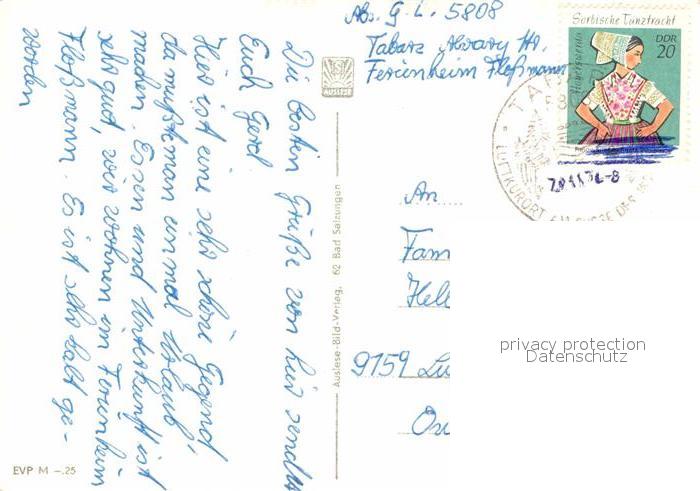 Abs. G. L. 5808
Tabarz
Ferienheim Floßmann
Sorbische Tanztracht
Hoyerswerda
DDR
20
TABARZ
LUFTKURORT AM FUSSE DES
-8
AUSLESE
Die besten Grüße von hier sendet
Euch Gerd
Hier ist eine sehr schöne Gegend
da müßte man einmal Urlaub
machen. Essen und Unterkunft ist
sehr gut, wir wohnen im Ferienheim
Floßmann. Es ist sehr kalt ge-
worden
Auslese-Bild-Verlag, 62 Bad Salzungen
An
Fam
9159 Lu
EVP M –.25
privacy protection
Datenschutz